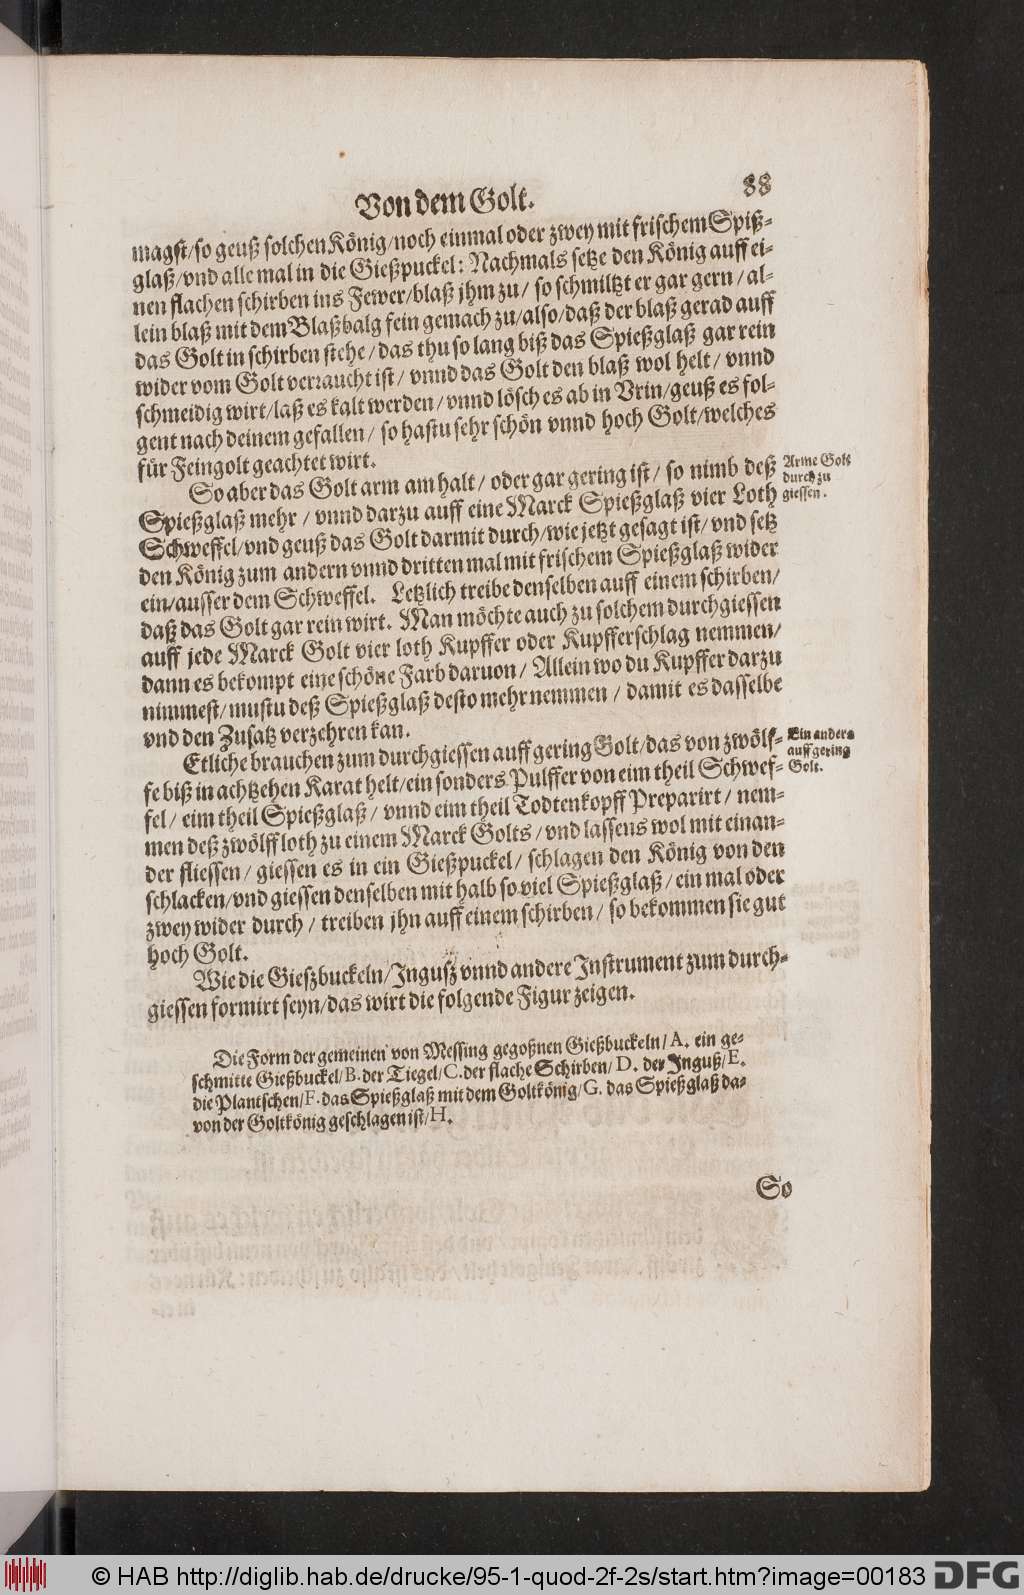 Von dem Golt.
88
magst/so geuß solchen König/noch einmal oder zwey mit frischem Spiß-
glaß/vnd alle mal in die Gießpuckel: Nachmals setze den König auff ei-
nen flachen schirben ins Fewer/blaß jhm zu/ so schmiltzt er gar gern/al-
lein blaß mit dem Blaßbalg fein gemach zu/also/daß der blaß gerad auff
das Golt in schirben stehe/das thu so lang biß das Spießglaß gar rein
wider vom Golt verraucht ist/ vnnd das Golt den blaß wol helt/ vnnd
schmeidig wirt/laß es kalt werden/vnnd lösch es ab in Vrin/geuß es fol-
gent nach deinem gefallen/ so hastu sehr schön vnnd hoch Golt/welches
für Feingolt geachtet wirt.
So aber das Golt arm am halt/ oder gar gering ist/ so nimb deß
Spießglaß mehr/ vnnd darzu auff eine Marck Spießglaß vier Loth
Schweffel/vnd geuß das Golt darmit durch/wie jetzt gesagt ist/ vnd setz
den König zum andern vnnd dritten mal mit frischem Spießglaß wider
ein/ausser dem Schweffel. Letzlich treibe denselben auff einem schirben/
daß das Golt gar rein wirt. Man möchte auch zu solchem durchgiessen
auff jede Marck Golt vier loth Kupffer oder Kupfferschlag nemmen/
dann es bekompt eine schöne Farb daruon/ Allein wo du Kupffer darzu
nimmest/mustu deß Spießglaß desto mehr nemmen/ damit es dasselbe
vnd den Zusatz verzehren kan.
Arme Golt
durch zu
giessen.
Etliche brauchen zum durchgiessen auff gering Golt/das von zwölf-
fe biß in achtzehen Karat helt/ein sonders Pulffer von eim theil Schwef-
fel/ eim theil Spießglaß/ vnnd eim theil Todtenkopff Preparirt/ nem-
men deß zwölff loth zu einem Marck Golts/ vnd lassens wol mit einan-
der fliessen/ giessen es in ein Gießpuckel/ schlagen den König von den
schlacken/vnd giessen denselben mit halb so viel Spießglaß/ ein mal oder
zwey wider durch/ treiben jhn auff einem schirben/ so bekommen sie gut
hoch Golt.
Ein anders
auff gering
Golt.
Wie die Gieszbuckeln/Ingusz vnnd andere Instrument zum durch-
giessen formirt seyn/das wirt die folgende Figur zeigen.
Die Form der gemeinen von Messing gegoßnen Gießbuckeln/ A. ein ge-
schmitte Gießbuckel/B. der Tiegel/C. der flache Schirben/ D. der Inguß/E.
die Plantschen/F. das Spießglaß mit dem Goltkönig/G. das Spießglaß da-
von der Goltkönig geschlagen ist/H.
So
© HAB http://diglib.hab.de/drucke/95-1-quod-2f-2s/start.htm?image=00183
DFG